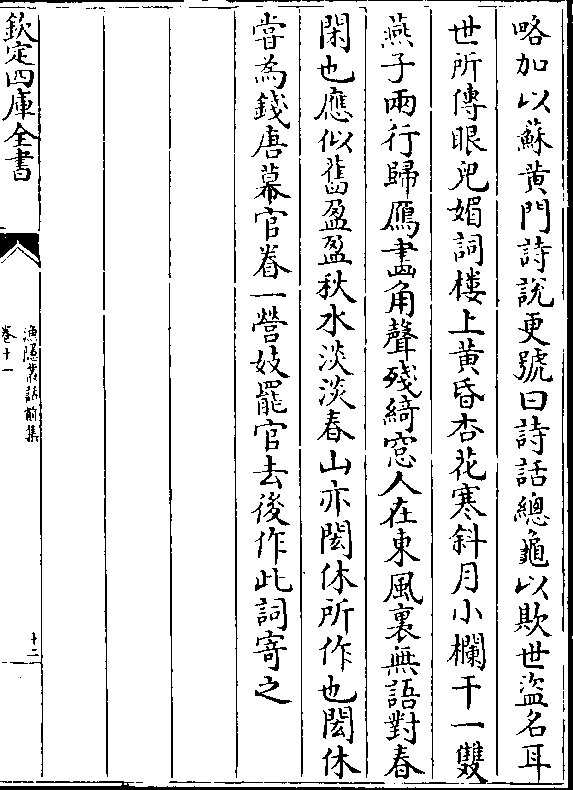 略加以蘇黄門詩說更號曰詩話總龜以欺世盜名耳
世所傳眼兒媚詞樓上黄昏杏花寒斜月小欄干一雙
燕子兩行歸鴈畫角聲殘綺窓人在東風裏無語對春
閑也應似舊盈盈秋水淡淡春山亦閎休所作也閎休
嘗為錢唐幕官眷一營妓罷官去後作此詞寄之
欽定四庫全書
漁隱叢話前集
卷十一
十二